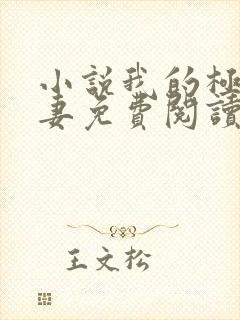 小說我的極
妻免費閱讀
王文松